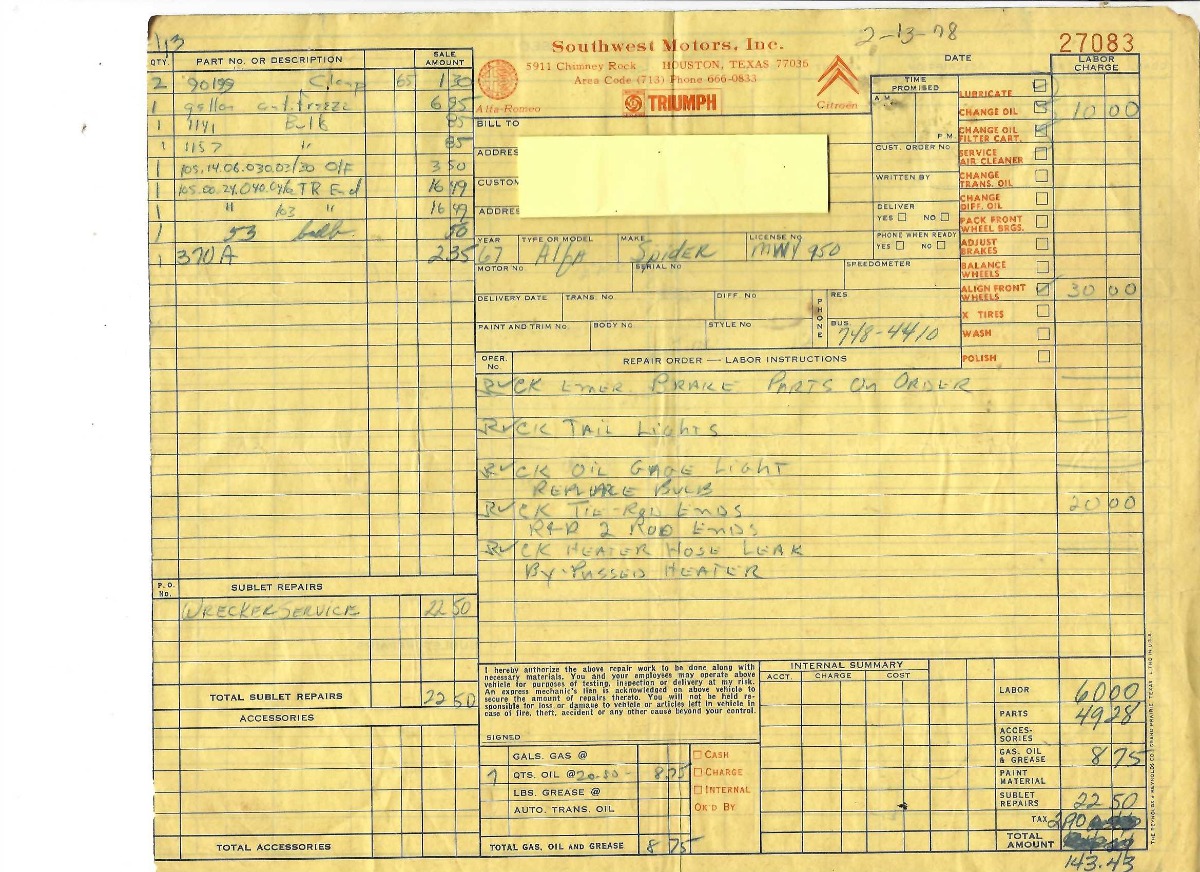 1/3
Southwest Motors, Inc.
5911 Chimney Rock HOUSTON, TEXAS 77036
Area Code (713) Phone 666-0833
Alfa-Romeo
TRIUMPH
Citroën
2-13-78
DATE
27083
QTY. PART NO. OR DESCRIPTION SALE AMOUNT
2 90199 Clamp 65 1 30
1 gallon antifreeze 6 95
1 1141 Bulb 85
1 1157 " 85
1 105.14.06.030.03/30 O/F 3 50
1 105.00.24.040.04/6 TR End 16 49
1 " 103 " 16 49
1 53 bulb 50
1 370A 2 35
P.O. No. SUBLET REPAIRS
WRECKER SERVICE 22 50
TOTAL SUBLET REPAIRS 22 50
ACCESSORIES
TOTAL ACCESSORIES
BILL TO
ADDRES
CUSTOM
ADDRES
TIME PROMISED
A.M.
P.M.
CUST. ORDER NO.
WRITTEN BY
DELIVER
YES NO
PHONE WHEN READY
YES NO
YEAR 67 TYPE OR MODEL Alfa MAKE Spider LICENSE NO. MWY 950
MOTOR NO. SERIAL NO SPEEDOMETER
DELIVERY DATE TRANS. NO DIFF. NO
PAINT AND TRIM NO. BODY NO. STYLE NO.
PHONE
RES.
BUS. 748-4410
LABOR CHARGE
LUBRICATE
CHANGE OIL 10 00
CHANGE OIL FILTER CART.
SERVICE AIR CLEANER
CHANGE TRANS. OIL
CHANGE DIFF. OIL
PACK FRONT WHEEL BRGS.
ADJUST BRAKES
BALANCE WHEELS
ALIGN FRONT WHEELS 30 00
X TIRES
WASH
POLISH
OPER. No. REPAIR ORDER — LABOR INSTRUCTIONS
R✓CK EMER. BRAKE PARTS ON ORDER
R✓CK TAIL LIGHTS
R✓CK OIL GAGE LIGHT
REPLACE BULB
R✓CK TIE-ROD ENDS 20 00
R&R 2 ROD ENDS
R✓CK HEATER HOSE LEAK
BY-PASSED HEATER
I hereby authorize the above repair work to be done along with
necessary materials. You and your employees may operate above
vehicle for purposes of testing, inspection or delivery at my risk.
An express mechanic's lien is acknowledged on above vehicle to
secure the amount of repairs thereto. You will not be held re-
sponsible for loss or damage to vehicle or articles left in vehicle in
case of fire, theft, accident or any other cause beyond your control.
SIGNED
GALS. GAS @
7 QTS. OIL @ 20-50 - 8.75
LBS. GREASE @
AUTO. TRANS. OIL
TOTAL GAS, OIL AND GREASE 8 75
CASH
CHARGE
INTERNAL
OK'D BY
INTERNAL SUMMARY
ACCT. CHARGE COST
LABOR 60 00
PARTS 49 28
ACCES-SORIES
GAS, OIL & GREASE 8 75
PAINT MATERIAL
SUBLET REPAIRS 22 50
TAX 2.90
TOTAL AMOUNT
143.43